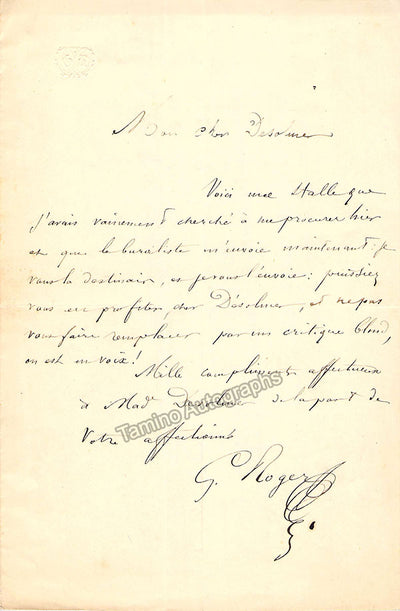 Mon cher Desolmes
Voici une Stalle que
j'avais vainement cherché à me procurer hier
et que le buraliste m'envoie maintenant : je
vous la destinais, et je vous l'envoie : puissiez
vous en profiter, cher Désolmes, et ne pas
vous faire remplacer par un critique blond,
on est en voix !
Mille compliments affectueux
à Made Desolmes de la part de
Votre affectionné
G. Roger
Tamino Autographs